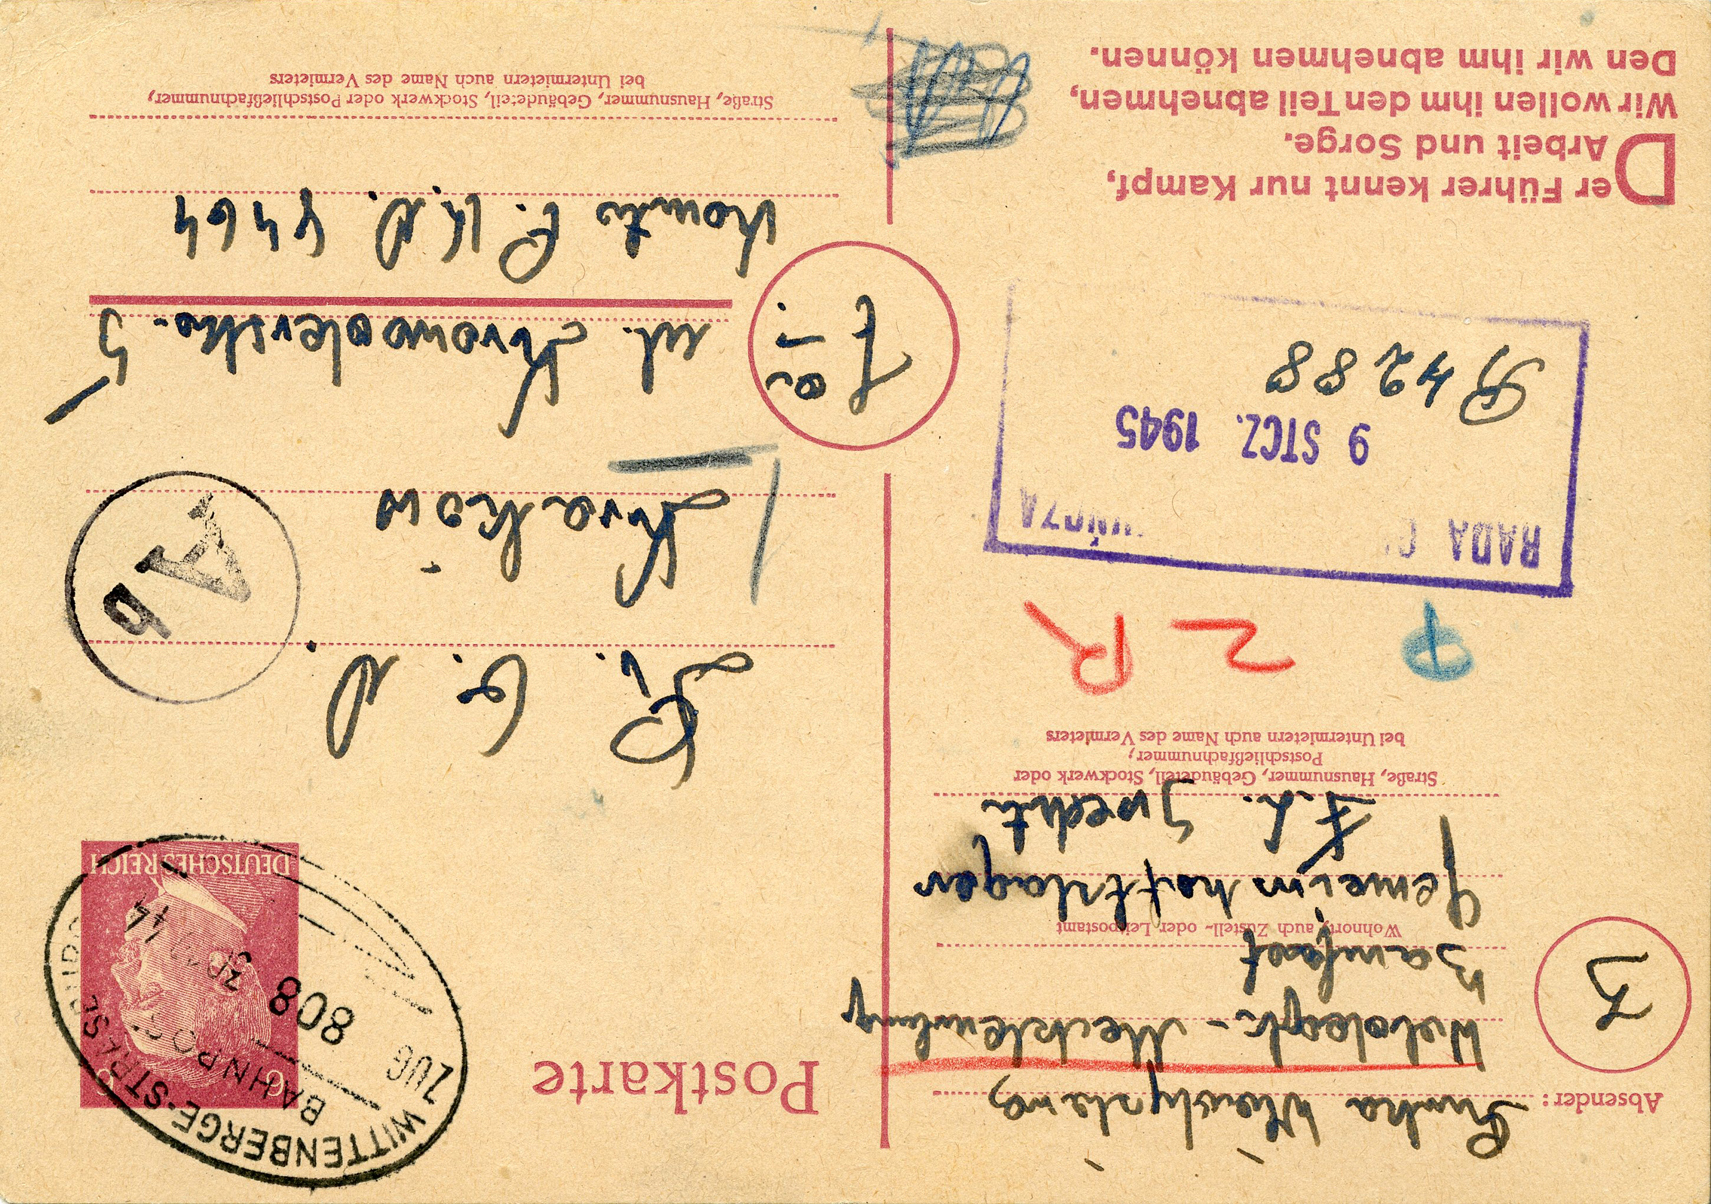 Der Führer kennt nur Kampf,
Arbeit und Sorge.
Wir wollen ihm den Teil abnehmen,
Den wir ihm abnehmen können.
Postkarte
6
DEUTSCHES REICH
WITTENBERGE-STRALS
BAHNPOST
ZUG
808
30.12.44
Absender:
Władysława
Wittenberge-Mecklenburg
Wohnort, auch Zustell- oder Leitpostamt
Gemeinschaftslager
Straße, Hausnummer, Gebäudeteil, Stockwerk oder
Postschließfachnummer;
bei Untermietern auch Name des Vermieters
P 2 R
RADA
9 STCZ. 1945
R 4288
Ab
R. G. O.
Kraków
ul. 5
Konto P.K.O. 4464
Straße, Hausnummer, Gebäudeteil, Stockwerk oder Postschließfachnummer;
bei Untermietern auch Name des Vermieters